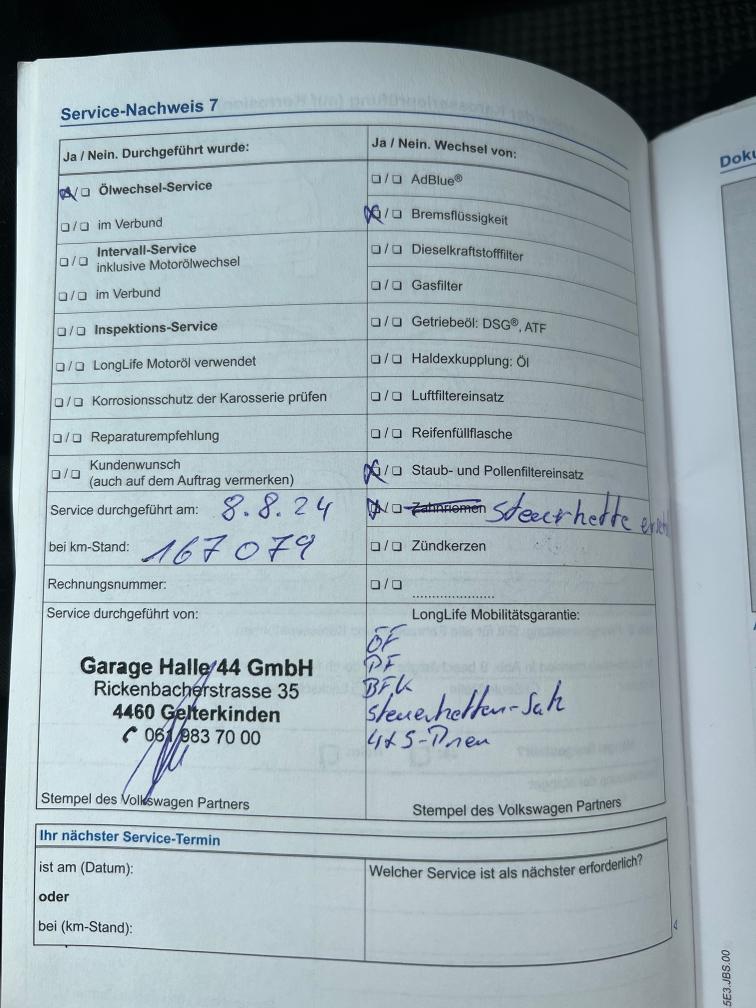 Service-Nachweis 7
Ja / Nein. Durchgeführt wurde:
Ölwechsel-Service
im Verbund
Intervall-Service
inklusive Motorölwechsel
im Verbund
Inspektions-Service
LongLife Motoröl verwendet
Korrosionsschutz der Karosserie prüfen
Reparaturempfehlung
Kundenwunsch
(auch auf dem Auftrag vermerken)
Service durchgeführt am: 8.8.24
bei km-Stand: 167079
Rechnungsnummer:
Service durchgeführt von:
Garage Halle 44 GmbH
Rickenbacherstrasse 35
4460 Gelterkinden
061 983 70 00
Stempel des Volkswagen Partners
Ja / Nein. Wechsel von:
AdBlue®
Bremsflüssigkeit
Dieselkraftstofffilter
Gasfilter
Getriebeöl: DSG®, ATF
Haldexkupplung: Öl
Luftfiltereinsatz
Reifenfüllflasche
Staub- und Pollenfiltereinsatz
Zahnriemen Steuerkette
Zündkerzen
LongLife Mobilitätsgarantie:
ÖF
PF
BFK
Steuerketten-Satz
4x S-Pneu
Stempel des Volkswagen Partners
Ihr nächster Service-Termin
ist am (Datum):
oder
bei (km-Stand):
Welcher Service ist als nächster erforderlich?
5E3.JBS.00
Doku